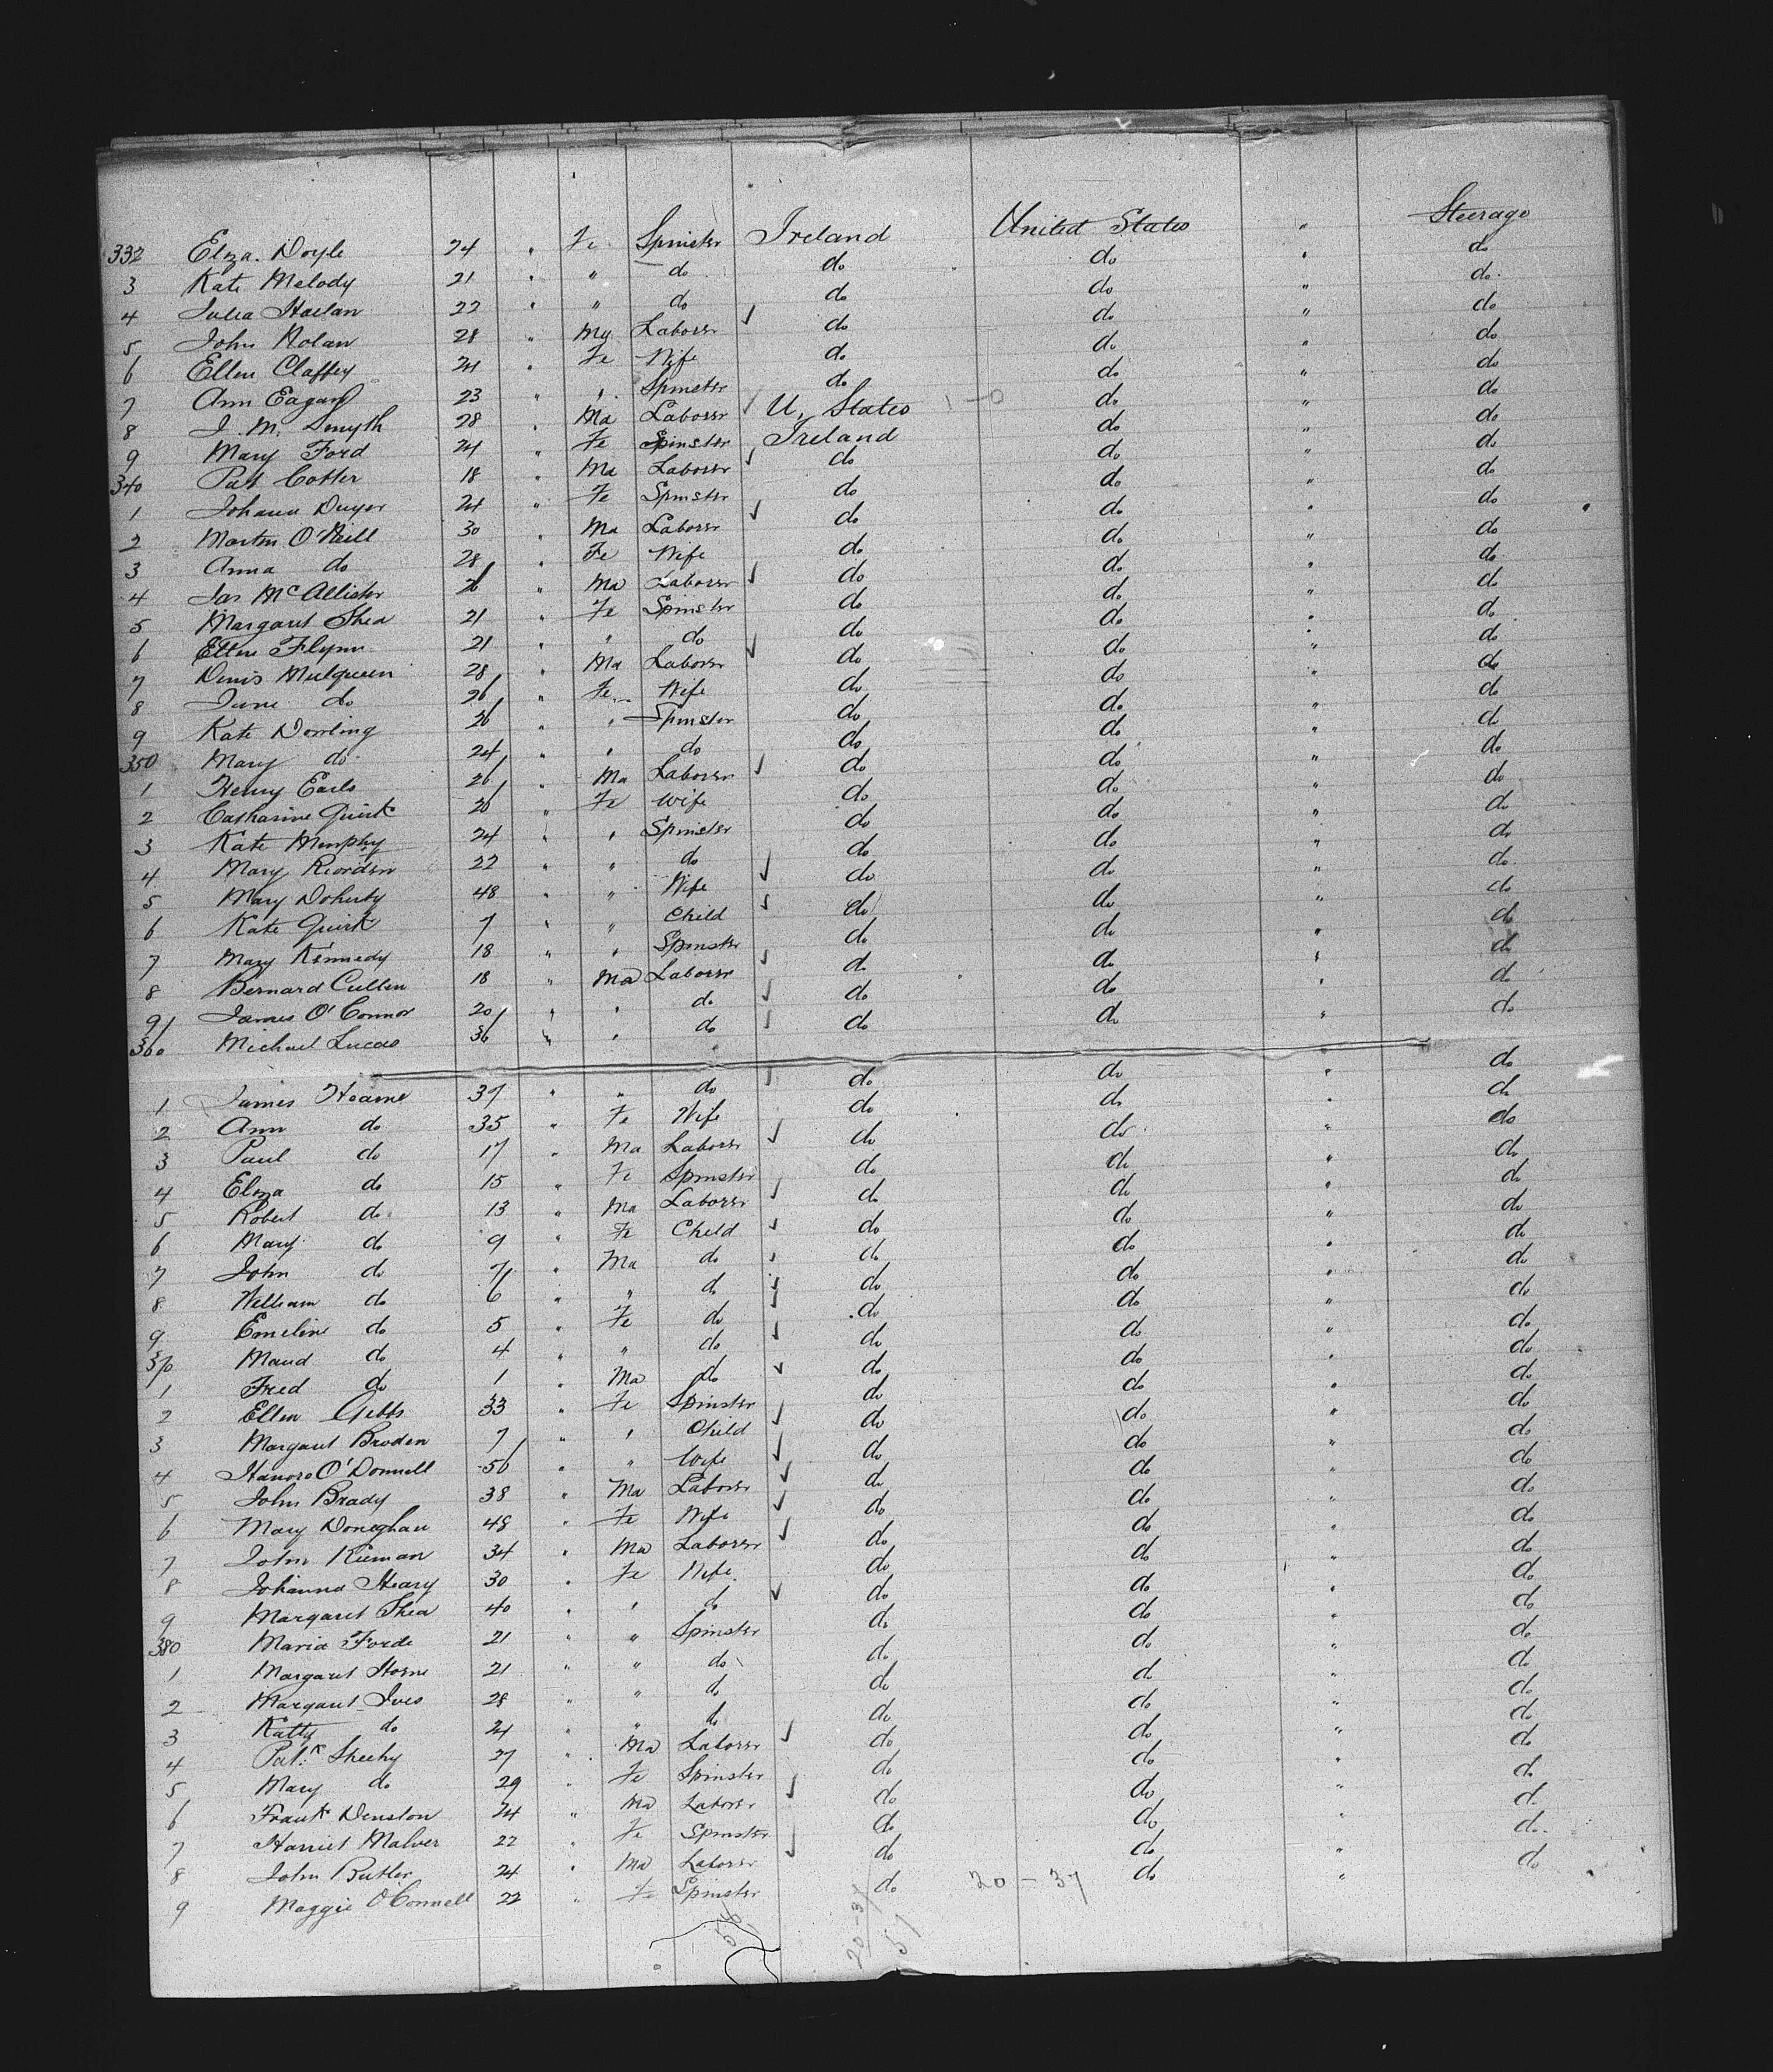 332 Eliza. Doyle 24 " Fe Spinster Ireland United States " Steerage
3 Kate Melody 21 " " do do do " do
4 Julia Harlan 22 " " do do do " do
5 John Nolan 28 " Ma Laborer do do " do
6 Ellen Claffey 24 " Fe Wife do do " do
7 Ann Eagan 23 " " Spinster do do " do
8 J. M. Smyth 28 " Ma Laborer U. States do " do
9 Mary Ford 24 " Fe Spinster Ireland do " do
340 Pat Cotter 18 " Ma Laborer do do " do
1 Johana Dwyer 24 " Fe Spinster do do " do
2 Martin O'Neill 30 " Ma Laborer do do " do
3 Anna do 28 " Fe Wife do do " do
4 Jas McAllister 26 " Ma Laborer do do " do
5 Margaret Shea 21 " Fe Spinster do do " do
6 Ellen Flynn 21 " " do do do " do
7 Denis Mulqueen 28 " Ma Laborer do do " do
8 Jane do 26 " Fe Wife do do " do
9 Kate Dowling 26 " " Spinster do do " do
350 Mary do 24 " " do do do " do
1 Henry Earls 26 " Ma Laborer do do " do
2 Catharine Quirk 26 " Fe Wife do do " do
3 Kate Murphy 24 " " Spinster do do " do
4 Mary Reordin 22 " " do do do " do
5 Mary Doherty 48 " " Wife do do " do
6 Kate Quirk 7 " " Child do do " do
7 Mary Kennedy 18 " " Spinster do do " do
8 Bernard Cullen 18 " Ma Laborer do do " do
9 James O'Connor 20 " " do do do " do
360 Michael Lucas 36 " " do do do " do
1 James Hearne 37 " " do do do " do
2 Ann do 35 " Fe Wife do do " do
3 Paul do 17 " Ma Laborer do do " do
4 Eliza do 15 " Fe Spinster do do " do
5 Robert do 13 " Ma Laborer do do " do
6 Mary do 9 " Fe Child do do " do
7 John do 7 " Ma do do do " do
8 William do 6 " " do do do " do
9 Emeline do 5 " Fe do do do " do
370 Maud do 4 " " do do do " do
1 Fred do 1 " Ma do do do " do
2 Ellen Gibbs 33 " Fe Spinster do do " do
3 Margaret Broden 7 " " Child do do " do
4 Hanora O'Donnell 56 " " Wife do do " do
5 John Brady 38 " Ma Laborer do do " do
6 Mary Doneghan 48 " Fe Wife do do " do
7 John Kiernan 34 " Ma Laborer do do " do
8 Johanna Heary 30 " Fe Wife do do " do
9 Margaret Shea 40 " " do do do " do
380 Maria Forde 21 " " Spinster do do " do
1 Margaret Horne 21 " " do do do " do
2 Margaret Ives 28 " " do do do " do
3 Katty do 24 " " do do do " do
4 Patk Sheehy 27 " Ma Laborer do do " do
5 Mary do 29 " Fe Spinster do do " do
6 Frank Denston 24 " Ma Laborer do do " do
7 Harriet Malver 22 " Fe Spinster do do " do
8 John Butler 24 " Ma Laborer do do " do
9 Maggie O'Connell 22 " Fe Spinster do 20 - 37 do "
20-37
57